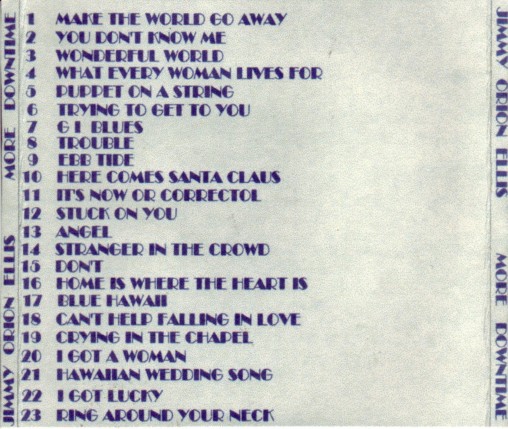 JIMMY ORION ELLIS MORE DOWNTIME
1 MAKE THE WORLD GO AWAY
2 YOU DON'T KNOW ME
3 WONDERFUL WORLD
4 WHAT EVERY WOMAN LIVES FOR
5 PUPPET ON A STRING
6 TRYING TO GET TO YOU
7 G I BLUES
8 TROUBLE
9 EBB TIDE
10 HERE COMES SANTA CLAUS
11 IT'S NOW OR CORRECTOL
12 STUCK ON YOU
13 ANGEL
14 STRANGER IN THE CROWD
15 DON'T
16 HOME IS WHERE THE HEART IS
17 BLUE HAWAII
18 CAN'T HELP FALLING IN LOVE
19 CRYING IN THE CHAPEL
20 I GOT A WOMAN
21 HAWAIIAN WEDDING SONG
22 I GOT LUCKY
23 RING AROUND YOUR NECK
JIMMY ORION ELLIS MORE DOWNTIME